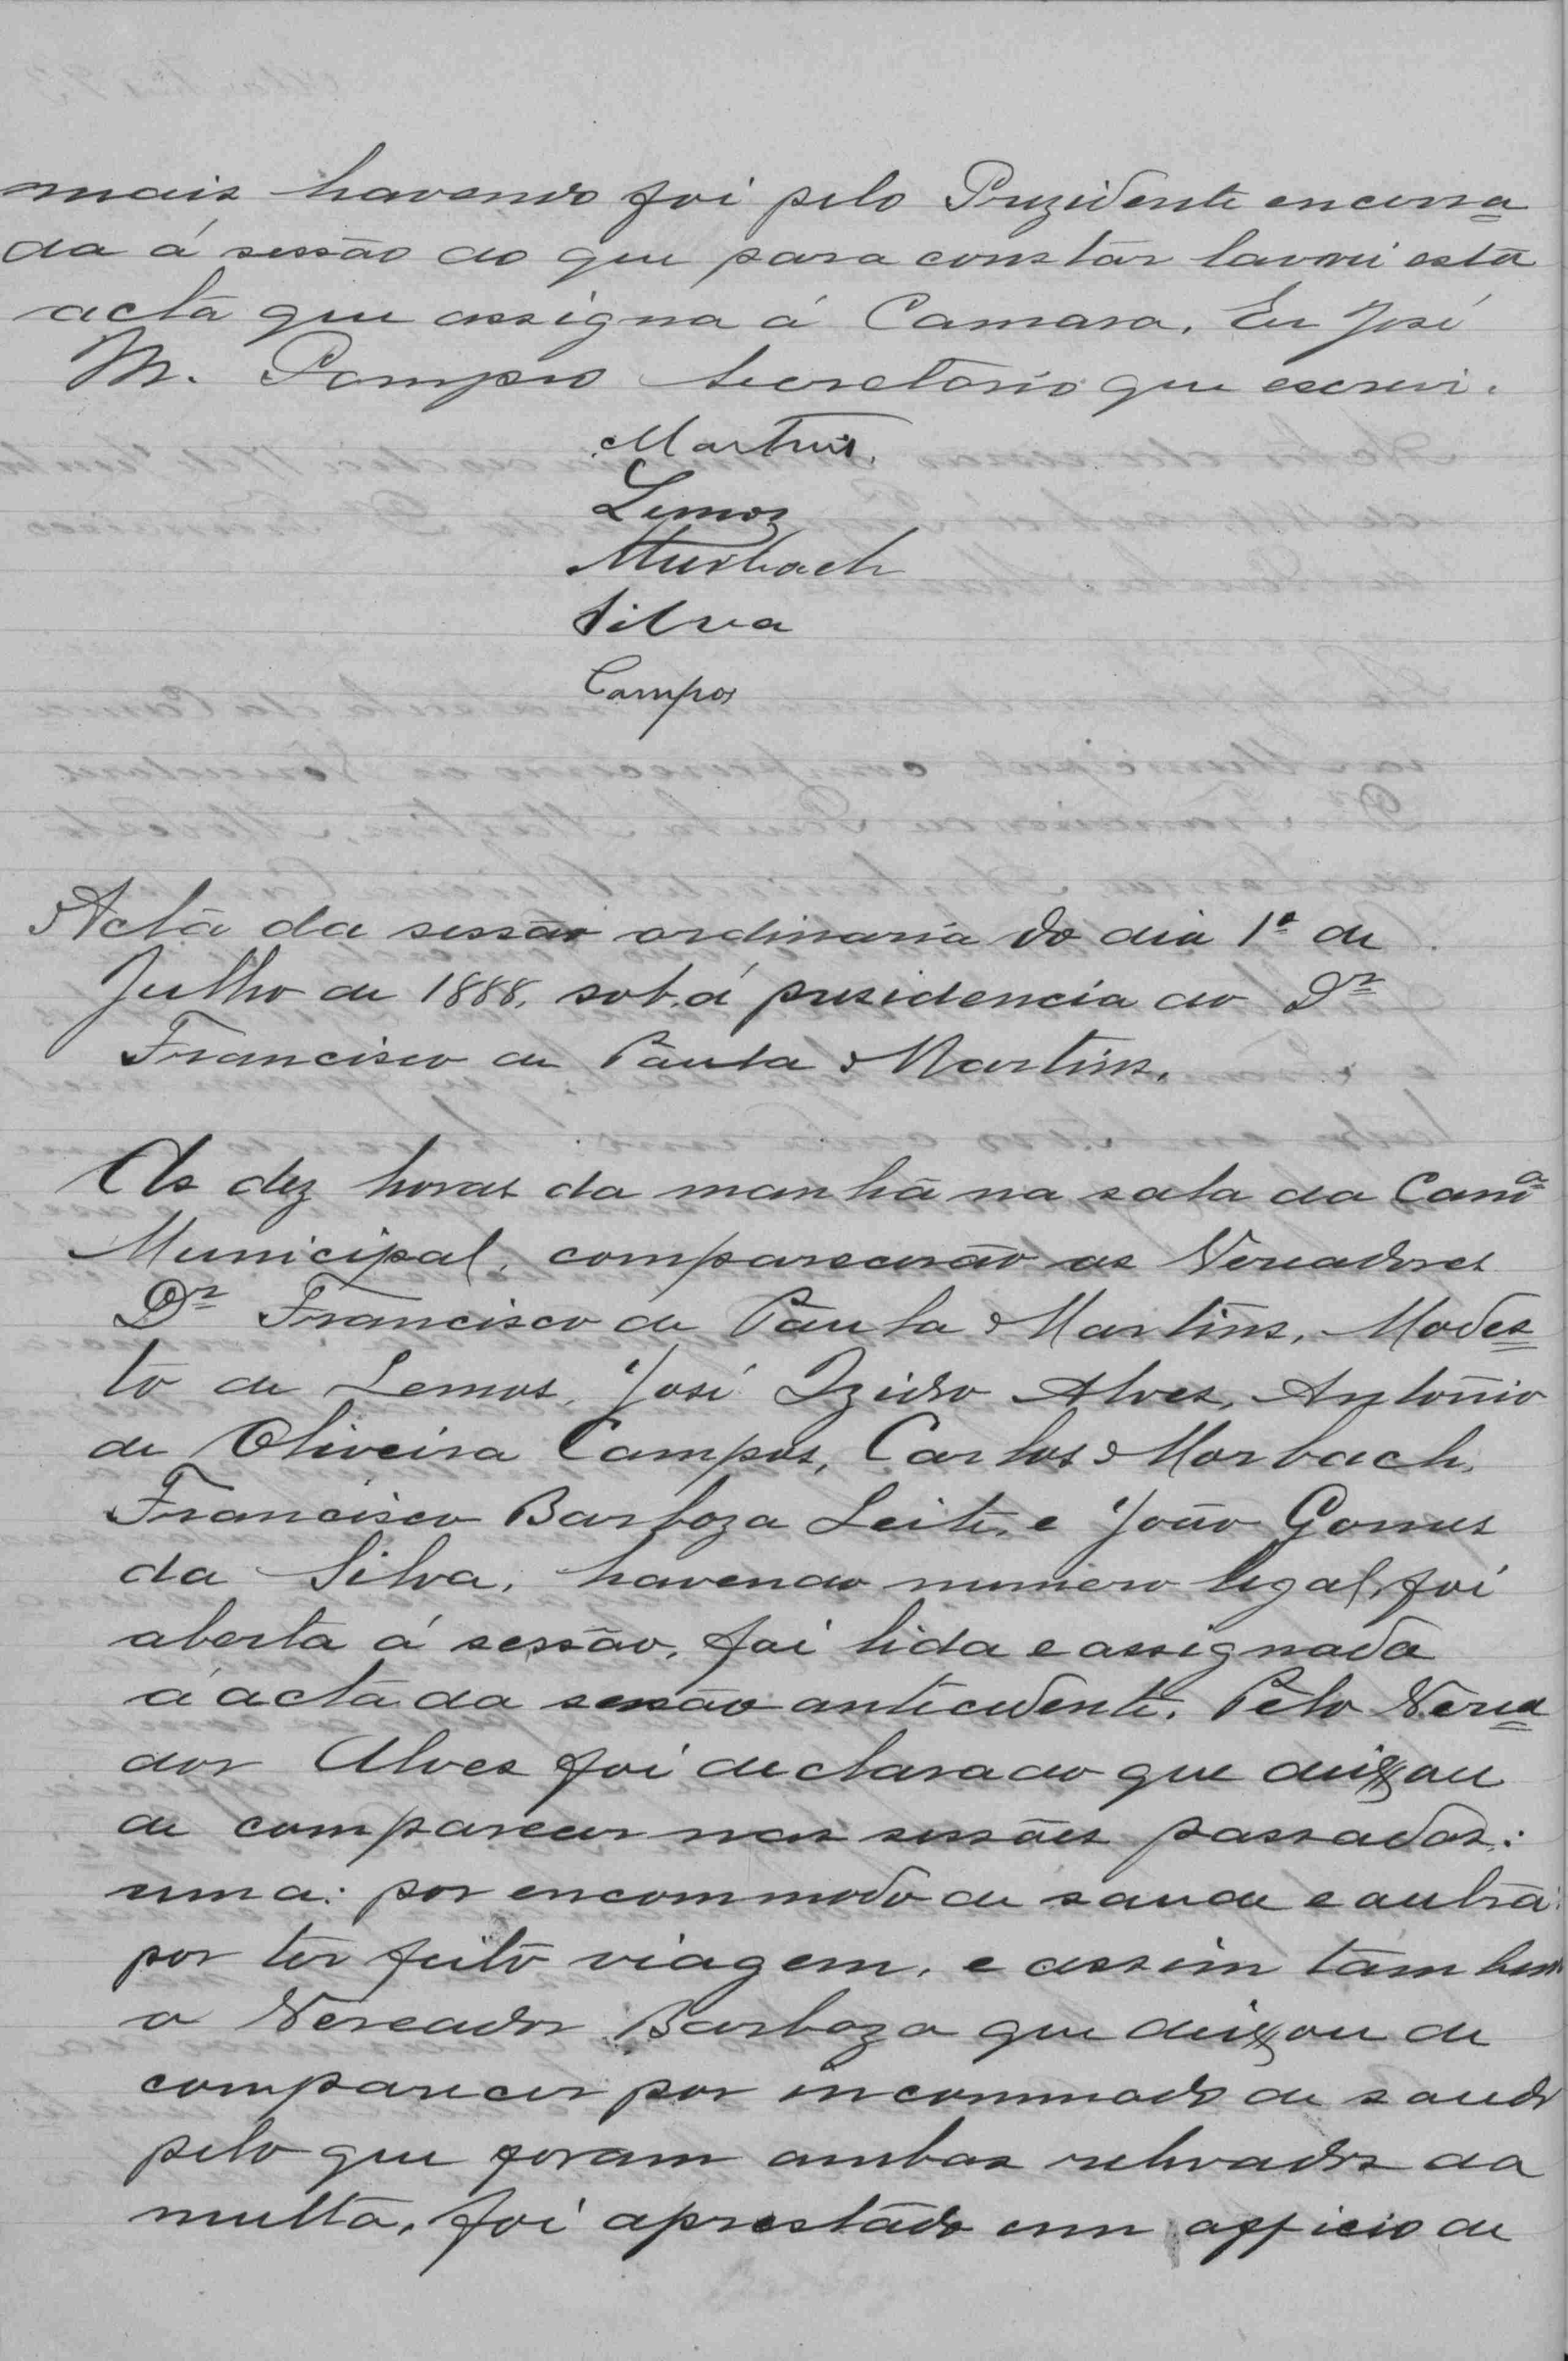 mais havendo foi pelo Prezidente encerra=
da á sessão do que para constar lavrei esta
acta que assigna á Camara. Eu José
M. Pompeo Secretario que escrevi.
Martins.
Lemos
Murbach
Silva
Campos
Acta da sessão ordinaria do dia 1º de
Julho de 1888, sob. á presidencia do Dr
Francisco de Paula Martins.
As dez horas da manhã na sala da Camª
Municipal, comparecerão os Vereadores
Dr Francisco de Paula Martins, Modes=
to de Lemos, José Izidro Alves, Antonio
de Oliveira Campos, Carlos Morbach,
Francisco Barboza Leite, e João Gomes
da Silva, havendo numero legal, foi
aberta á sessão, foi lida e assignada
á acta da sessão antecedente. Pelo Verea=
dor Alves foi declarado que deixou
de comparecer nas sessões passadas:
uma: por encommodo de saude e outra:
por ter feito viagem, e assim tambem
o Vereador Barboza que deixou de
comparecer por incommodo de saude
pelo que foram ambos relevados da
multa, foi aprestado um officio de